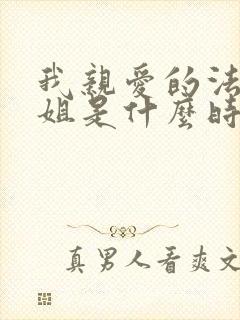 我親愛的法
姐是什麼時
真男人看爽文